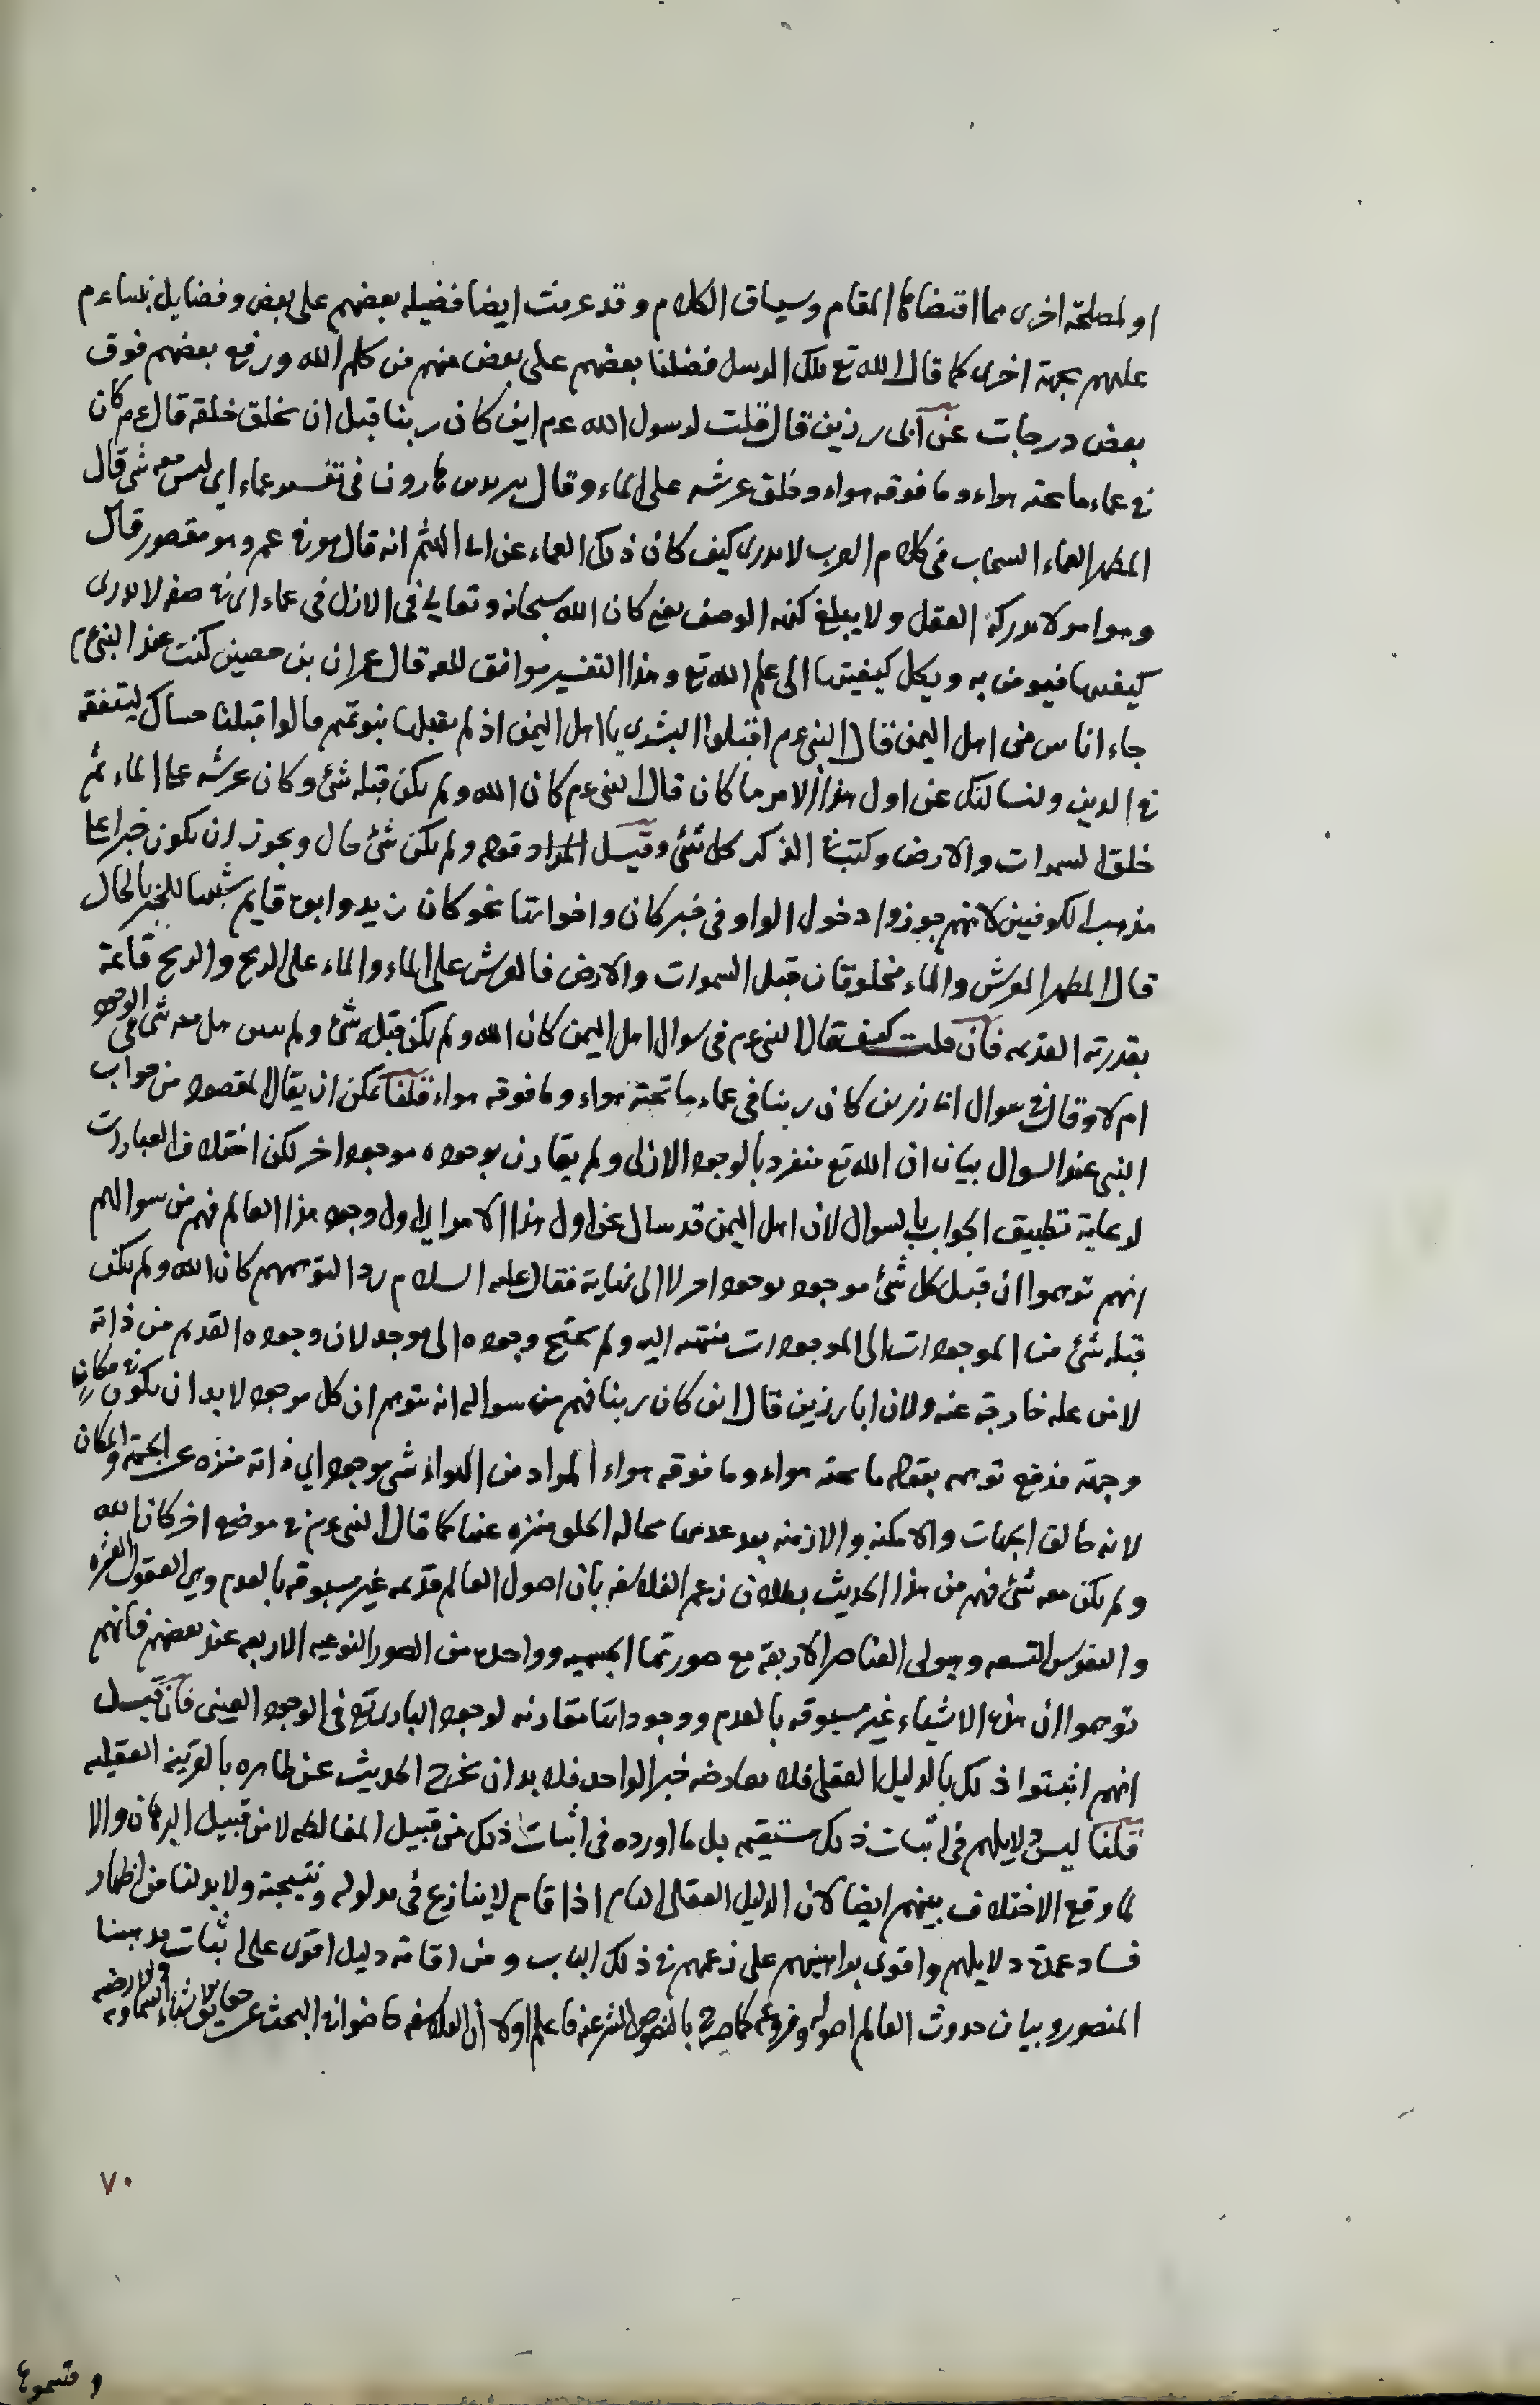 او لمصلحة اخرى مما اقتضاها المقام وسياق الكلام وقد عرفت ايضا فضيله بعضهم على بعض وفضايل نساءم
عليهم بجهة اخرى كما قال الله تع تلك الرسل فضلنا بعضهم على بعض منهم من كلم الله ورفع بعضهم فوق
بعض درجات عن ابى رزين قال قلت لرسول الله عم اين كان ربنا قبل ان يخلق خلقه قال عم كان
فى عماء ما تحته هواء وما فوقه هواء وخلق عرشه على الماء وقال يريد بن هارون فى تفسير عماء اى ليس معه شى قال
المظهر العماء السحاب فى كلام العرب لا يدرى كيف كان ذلك العماء عن ابى الهيثم انه قال هو فى عمى وهو مقصور قال
وهو امر لا يدركه العقل ولا يبلغ كنهه الوصف يعنى كان الله سبحانه وتعالى فى الازل فى عماء اى فى صفه لا يدرى
كيفيتها فيومن به ويكل كيفيتها الى علم الله تع وهذا التفسير موافق للغه قال عمران بن حصين كنت عند النبى عم
جاء اناس من اهل اليمن فقال النبى عم اقبلوا البشرى يا اهل اليمن اذ لم يقبلها بنو تميم قالوا قبلنا جيناك ليتفقه
فى الدين ولنسالنك عن اول هذا الامر ما كان قال النبى عم كان الله ولم يكن قبله شئ وكان عرشه على الماء ثم
خلق السموات والارض وكتب فى الذكر كل شئ وقيل المراد قوله ولم يكن شئ حال ويجوز ان يكون خبرا على
مذهب الكوفيين لانهم جوزوا دخول الواو فى خبر كان واخواتها نحو كان زيد وابوه قايم تشبيها للخبر بالحال
قال المظهر العرش والماء مخلوقان قبل السموات والارض فالعرش على الماء والماء على الريح والريح قائمة
بقدرته القديمه فان قلت كيف قال النبى عم فى سوال اهل اليمن كان الله ولم يكن قبله شئ ولم يبين هل معه شى فى الوجود
ام لا وقال فى سوال ابى رزين كان ربنا فى عماء ما تحته هواء وما فوقه هواء قلنا يمكن ان يقال المقصود من جواب
النبى عند السوال بيان ان الله تع منفرد بالوجود الازلى ولم يقارن بوجوده موجود اخر لكن اختلاف العبارات
لرعاية تطبيق الجواب بالسوال لان اهل اليمن قد سال عن اول هذا الامر اى اول وجود هذا العالم فهم من سوالهم
انهم توهموا ان قبل كل شئ موجود موجود اخر لا الى نهاية فقال عليه السلام ردا لتوهمهم كان الله ولم يكن
قبله شئ من الموجودات الى الموجودات منتهيه اليه ولم يحتج وجوده الى موجد لان وجوده القديم من ذاته
لا من علة خارجة عنه ولان ابا رزين قال اين كان ربنا فهم من سواله انه توهم ان كل موجود لا بد ان يكون فى مكان
وجهة فدفع توهمه بقوله ما تحته هواء وما فوقه هواء المراد من الهواء شى موجود اى ذاته منزه عن الجهة والمكان
لانه خالق الجهات والامكنه والازمنه بعد عدمها محاله الخلق منزه عنها كما قال النبى عم فى موضع اخر كان الله
ولم يكن معه شئ فهم من هذا الحديث بطلان زعم الفلاسفه بان اصول العالم قديمه غير مسبوقه بالعدم وهى العقول العشره
والنفوس التسعه وهيولى العناصر الاربعة مع صورتها الجسميه وواحد من الصور النوعيه الاربعه عند بعضهم فانهم
توهموا ان هذه الاشياء غير مسبوقه بالعدم ووجوداتها مقارنه لوجود البارى تع فى الوجود العينى فان قيل
انهم اثبتوا ذلك بالدليل العقلى فلا يعارضه خبر الواحد فلا بد ان يخرج الحديث عن ظاهره بالقرينه العقليه
قلنا ليس دلايلهم فى اثبات ذلك مستقيمه بل ما اورده فى اثبات ذلك من قبيل المغالطه لا من قبيل البرهان والا
لما وقع الاختلاف بينهم ايضا لان الدليل العقلى التام اذا قام لا ينازع فى مدلوله ونتيجته ولا بد لنا من اظهار
فساد عمدة دلايلهم واقوى براهينهم على زعمهم فى ذلك الباب ومن اقامة دليل اقوى على اثبات مذهبنا
المنصور وبيان حدوث العالم اصوله وفروعه كما صرح بالنصوص الشرعيه فاعلم اولا ان الفلاسفه خاضوا فى البحث عن حقايق الاشياء السماويه والارضيه
٧٠
وقسموها